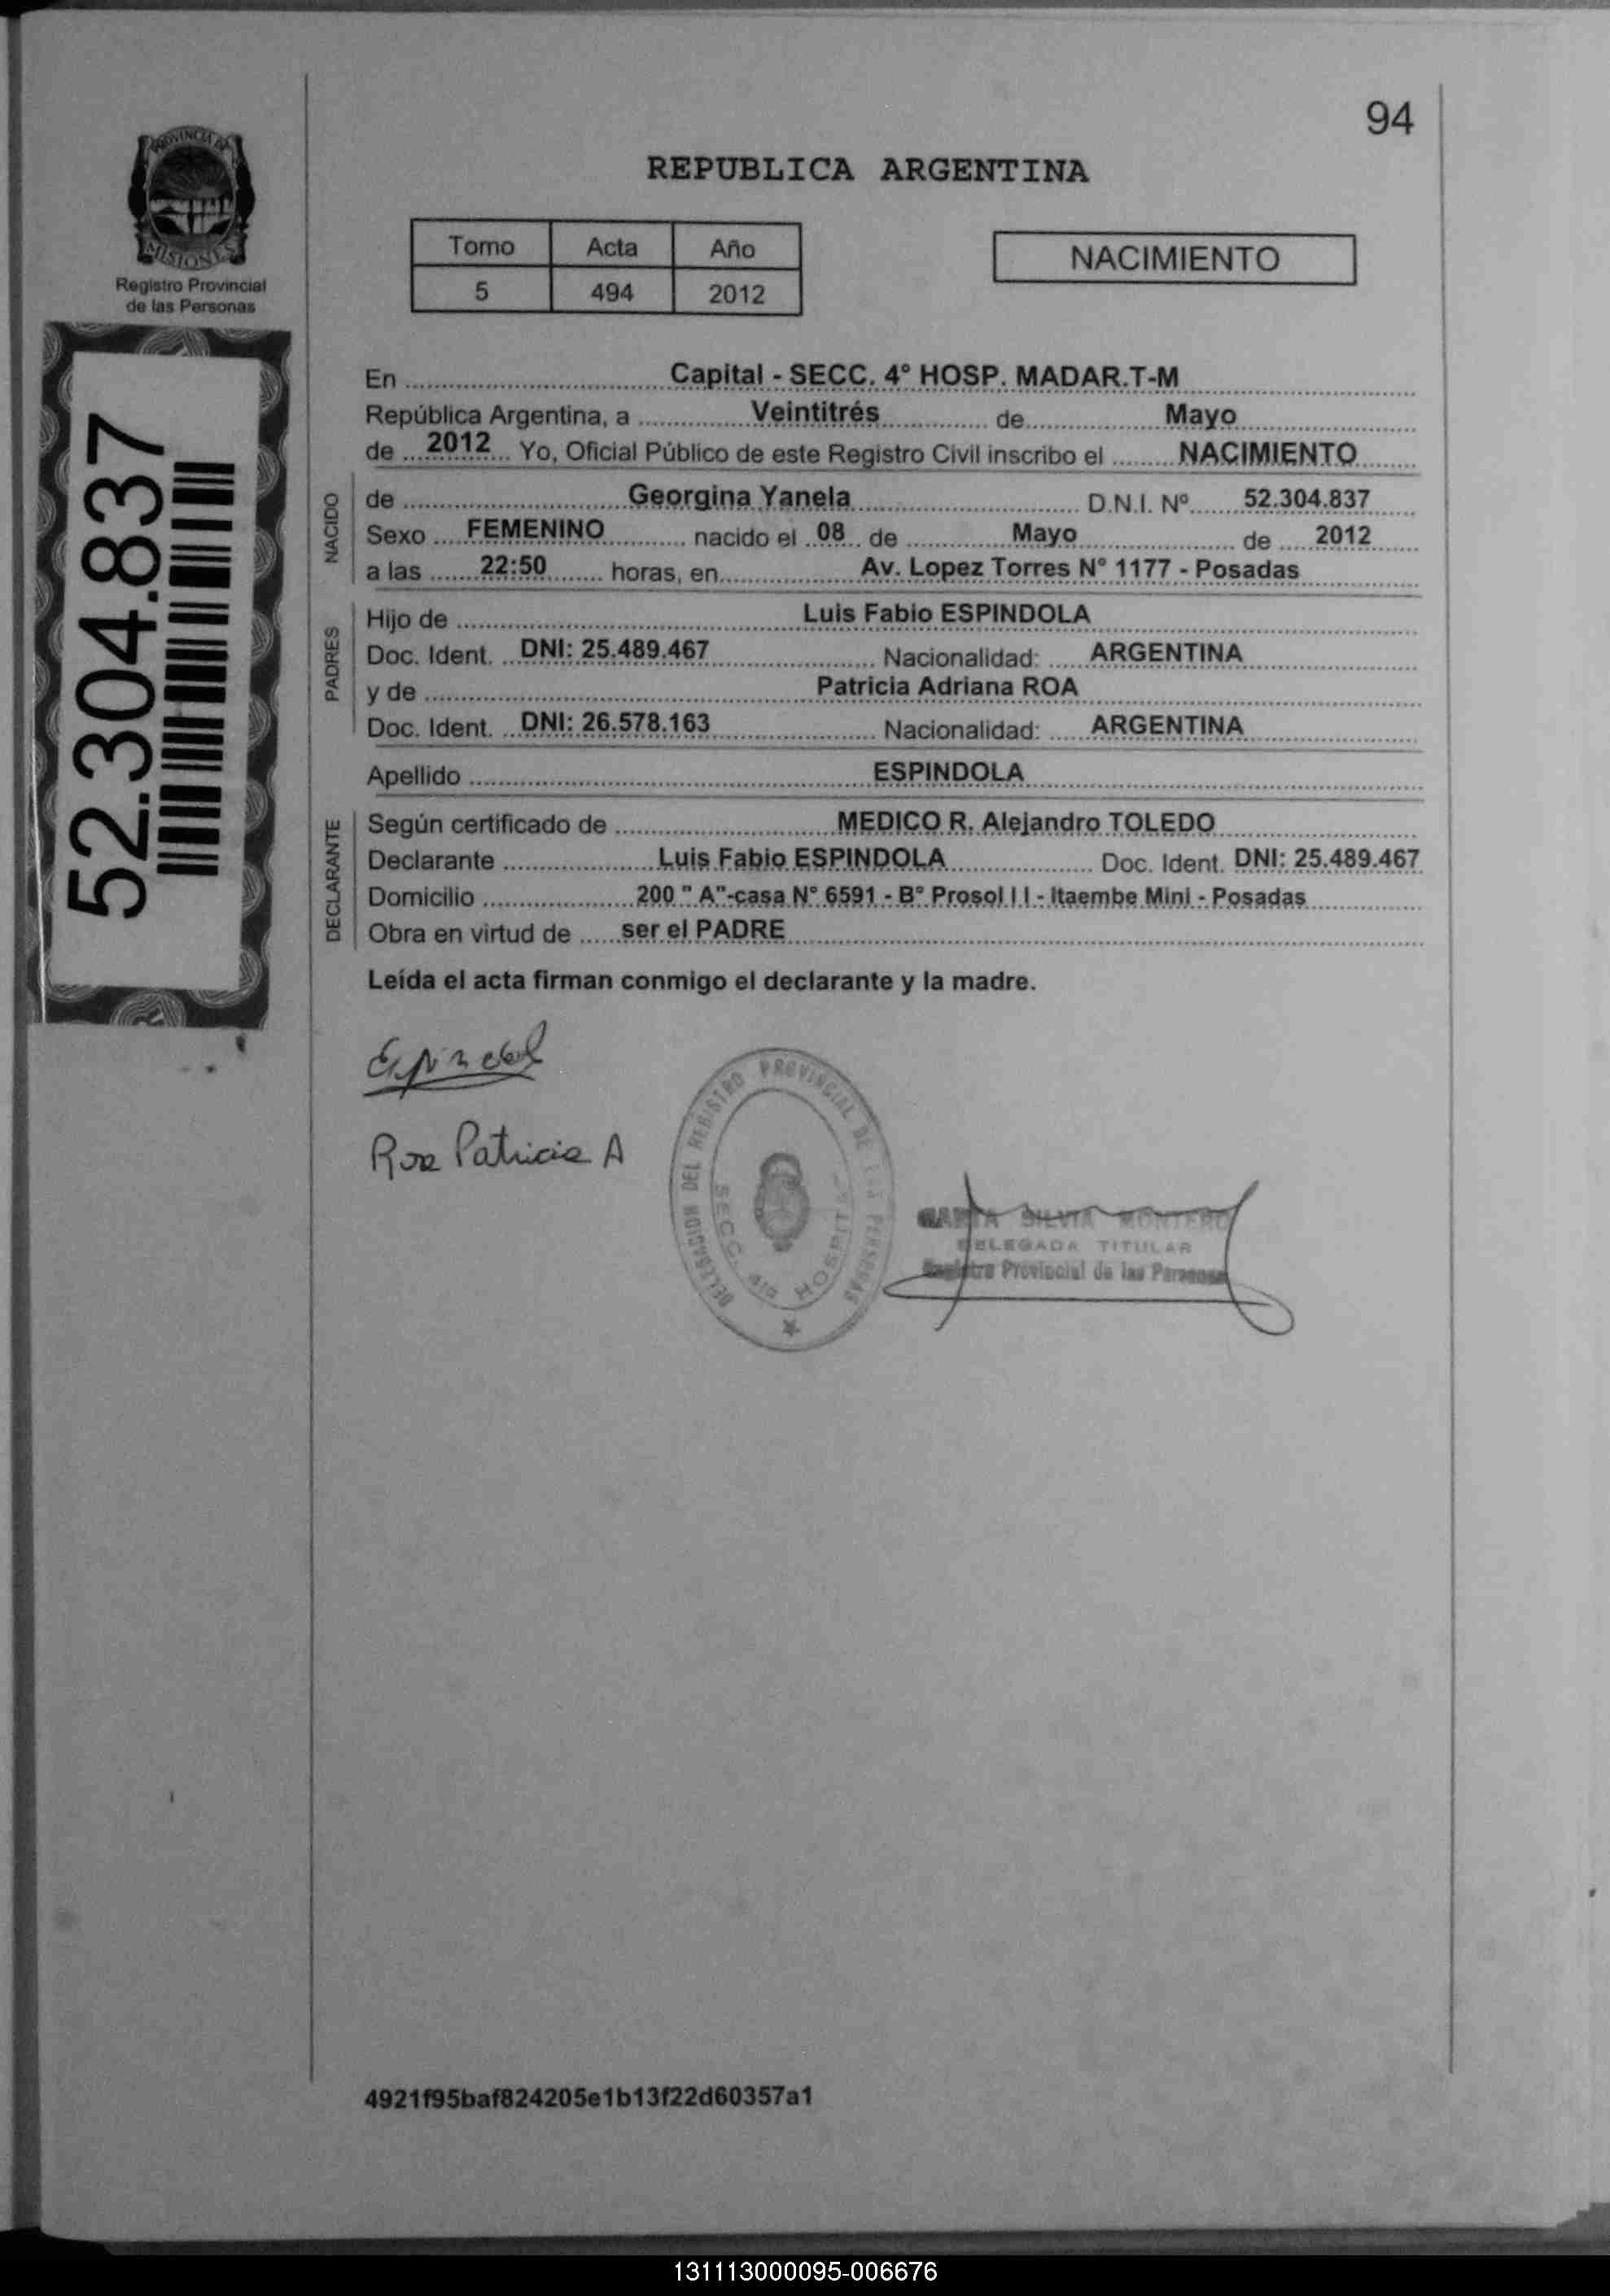 94
PROVINCIA DE
MISIONES
Registro Provincial
de las Personas
REPUBLICA ARGENTINA
Tomo Acta Año
5 494 2012
NACIMIENTO
52.304.837
En Capital - SECC. 4º HOSP. MADAR.T-M
República Argentina, a Veintitrés de Mayo
de 2012 Yo, Oficial Público de este Registro Civil inscribo el NACIMIENTO
NACIDO
de Georgina Yanela D.N.I. Nº 52.304.837
Sexo FEMENINO nacido el 08 de Mayo de 2012
a las 22:50 horas, en Av. Lopez Torres N° 1177 - Posadas
PADRES
Hijo de Luis Fabio ESPINDOLA
Doc. Ident. DNI: 25.489.467 Nacionalidad: ARGENTINA
y de Patricia Adriana ROA
Doc. Ident. DNI: 26.578.163 Nacionalidad: ARGENTINA
Apellido ESPINDOLA
DECLARANTE
Según certificado de MEDICO R. Alejandro TOLEDO
Declarante Luis Fabio ESPINDOLA Doc. Ident. DNI: 25.489.467
Domicilio 200 " A"-casa N° 6591 - B° Prosol I I - Itaembe Mini - Posadas
Obra en virtud de ser el PADRE
Leída el acta firman conmigo el declarante y la madre.
Roa Patricia A
DELEGACION DEL REGISTRO PROVINCIAL DE LAS PERSONAS
SECC. 4ta HOSPITAL
SILVIA MONTERO
DELEGADA TITULAR
Registro Provincial de las Personas
4921f95baf824205e1b13f22d60357a1
131113000095-006676